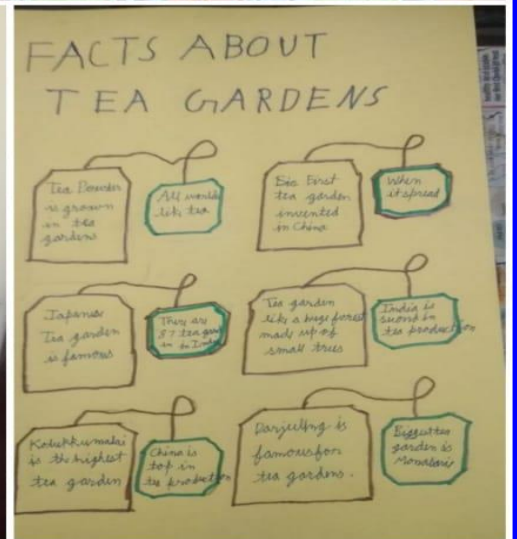 FACTS ABOUT
TEA GARDENS
Tea Powder
is grown
in tea
gardens
All world
like tea
First
tea garden
invented
in China
When
it spread
Japanese
Tea garden
is famous
There are
87 tea
in
Tea garden
like a huge forest
made up of
small trees
India is
second in
tea production
Kolukkumalai
is the highest
tea garden
China is
top in
tea production
Darjeeling is
famous for
tea gardens.
Biggest tea
garden is